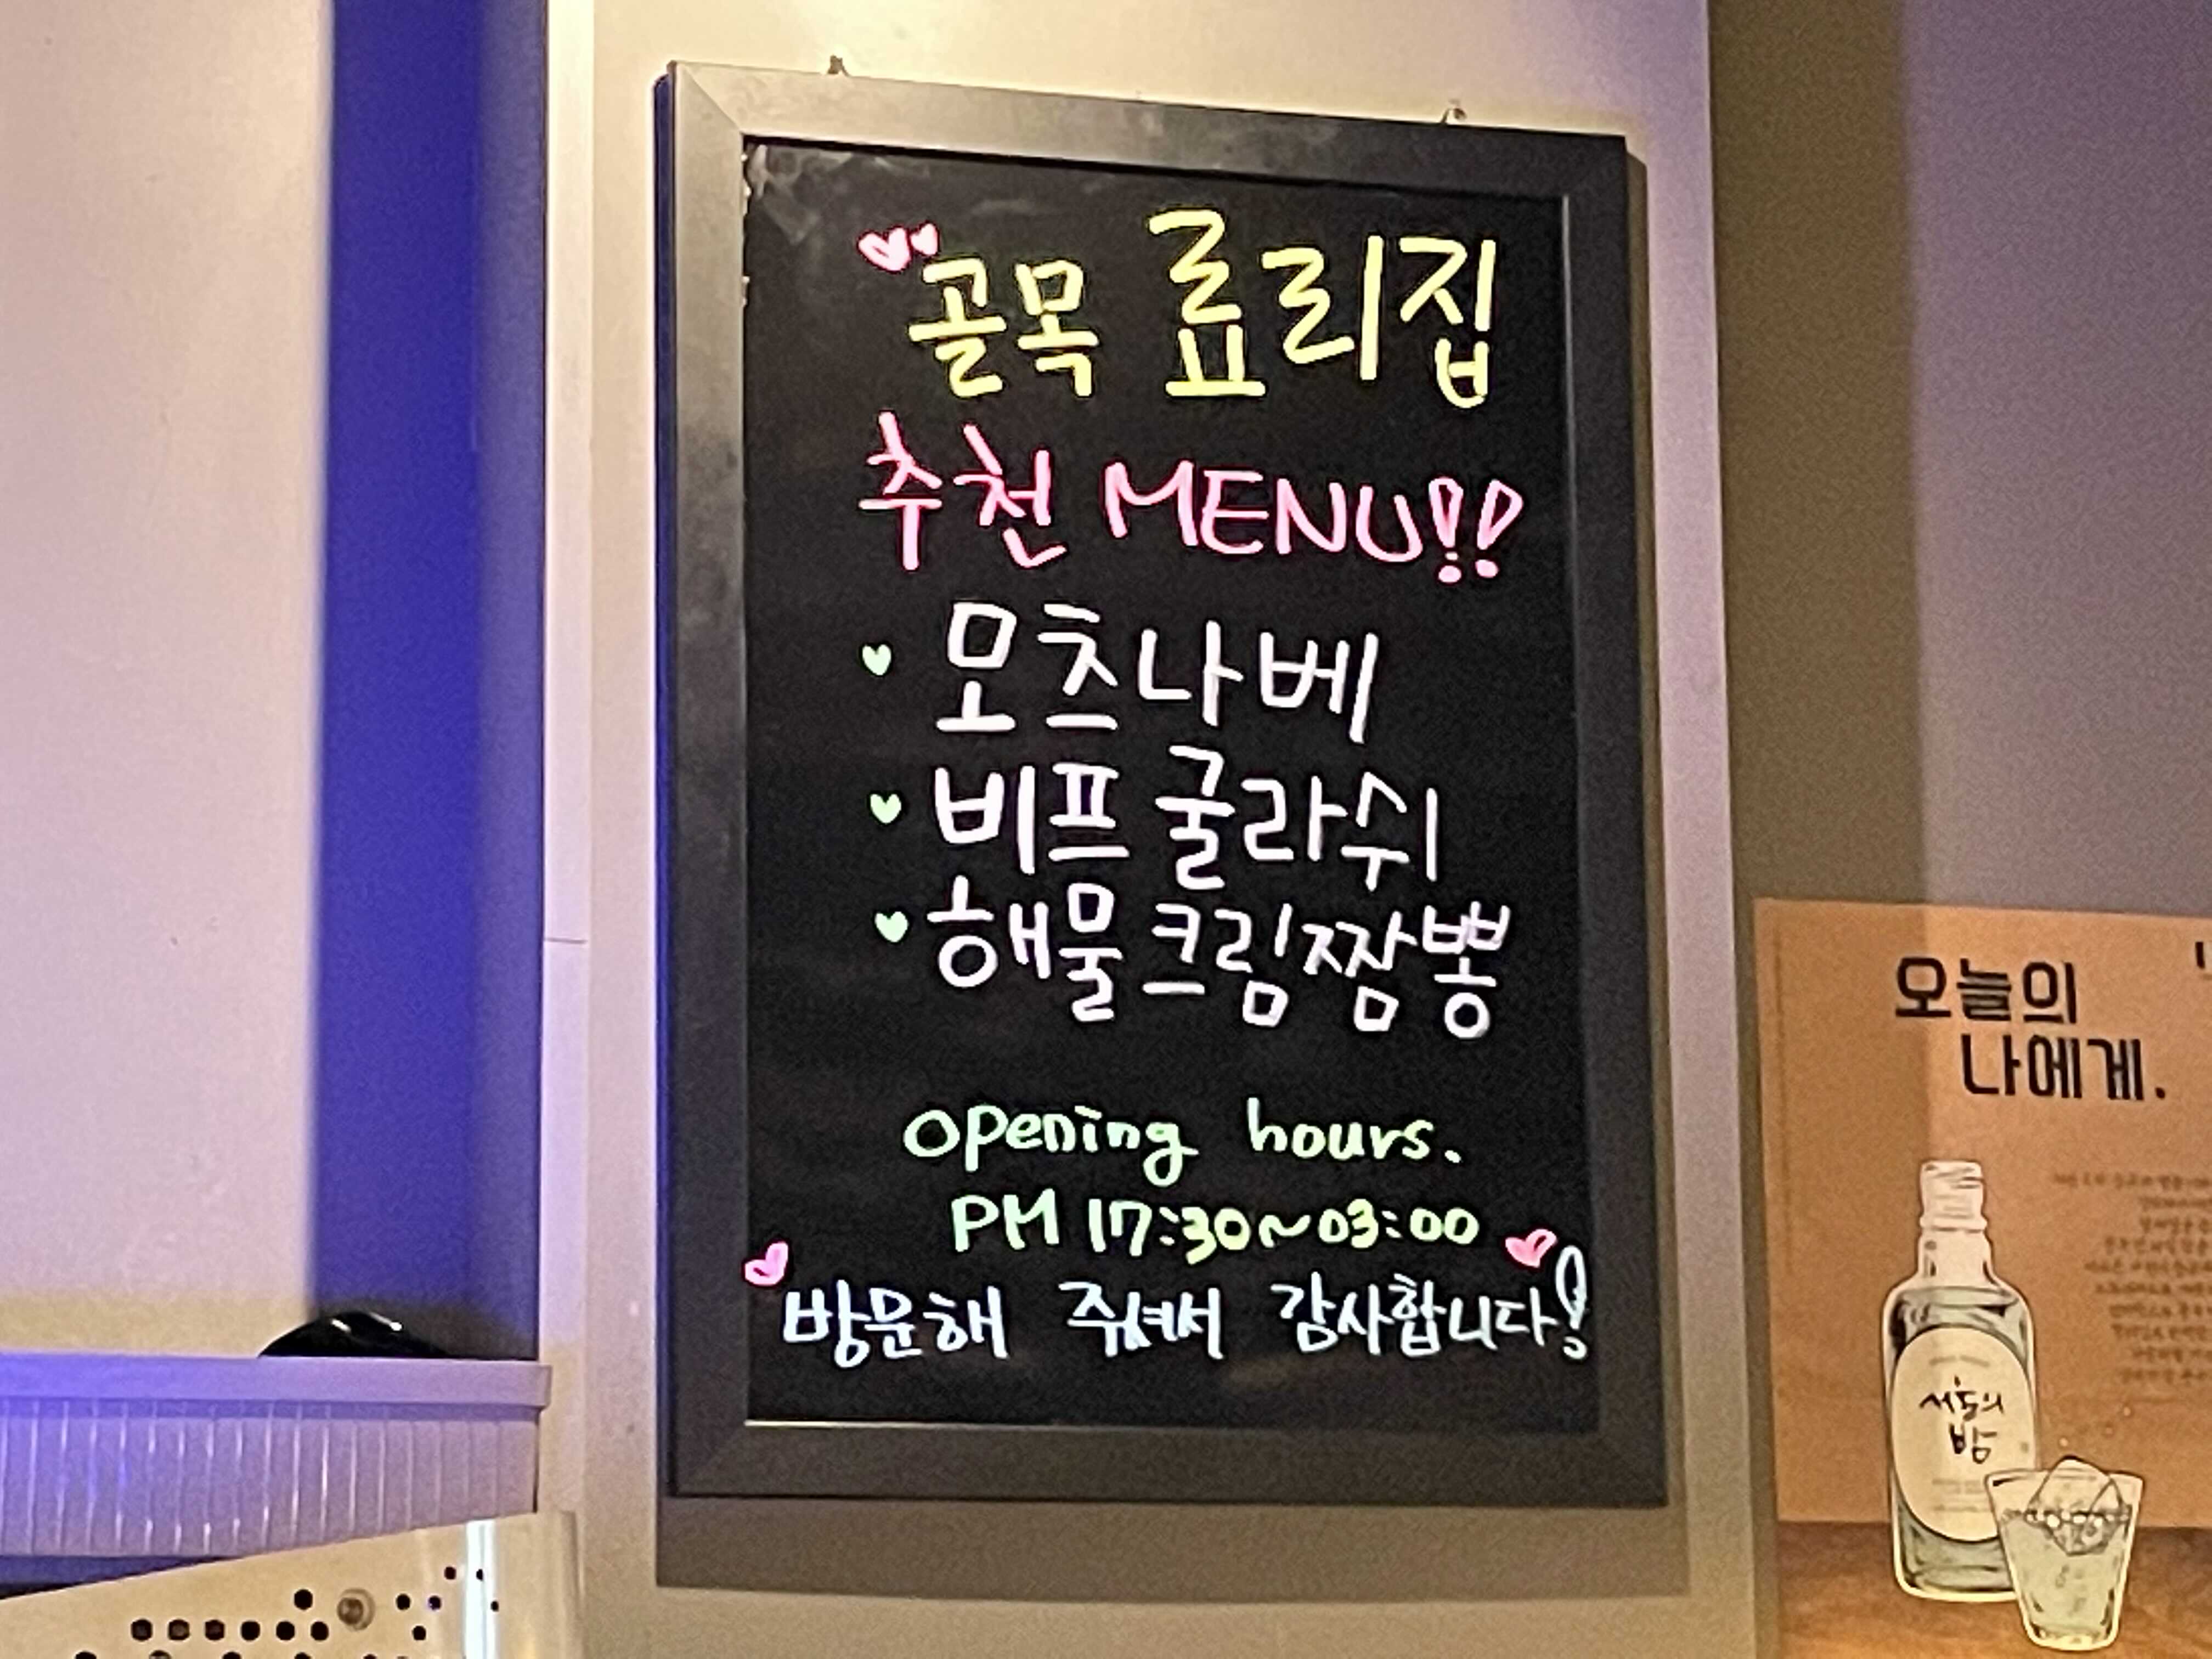 골목 료리집
추천 MENU!!
모츠나베
비프 굴라쉬
해물크림짬뽕
opening hours.
PM 17:30~03:00
방문해 주셔서 감사합니다!
오늘의
나에게.
서울의
밤